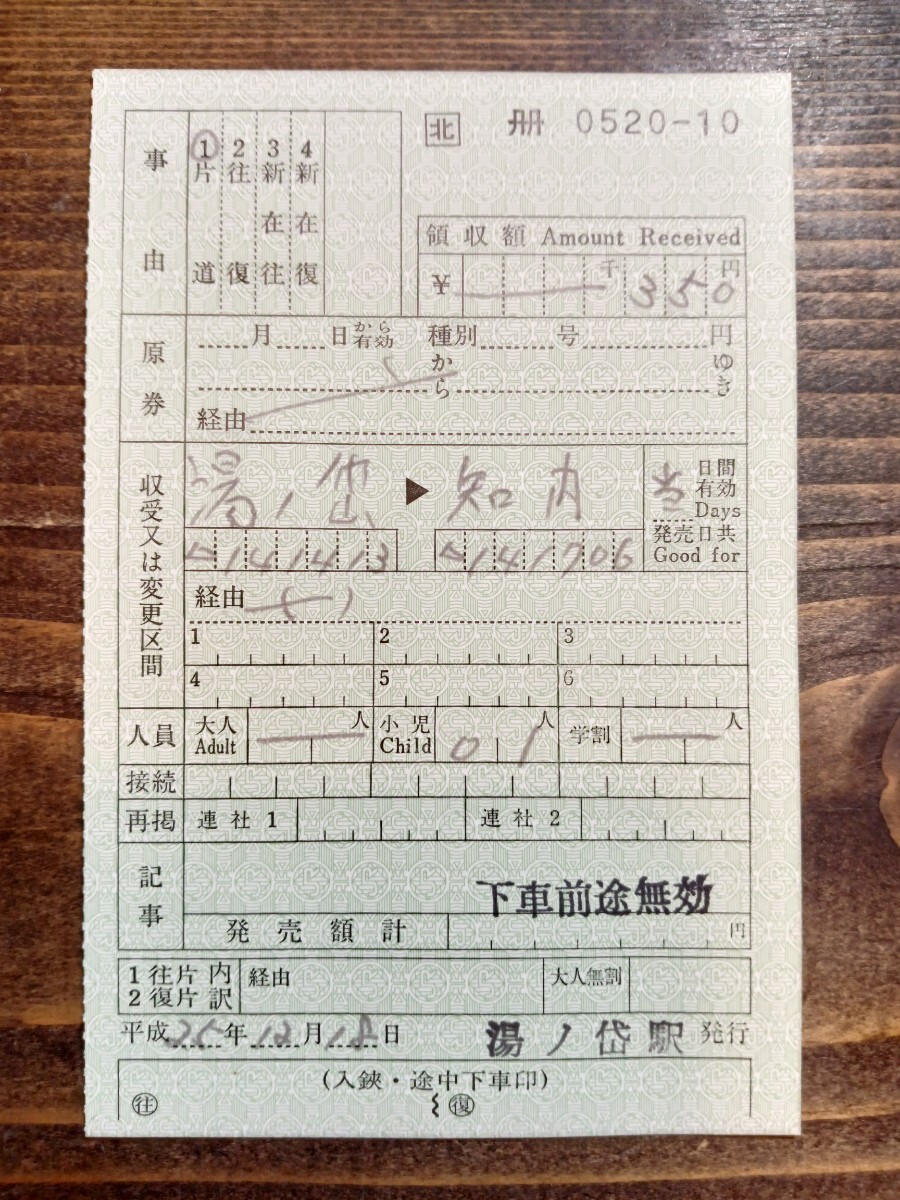 北 冊 0520-10
事由
1 片道
2 往復
3 新在往
4 新在復
領収額 Amount Received
¥ 千 350 円
原券
月 日から有効 種別 号 円
から ゆき
経由
収受又は変更区間
湯ノ岱 ▶ 知内
当日間有効
Days
発売日共
Good for
141413 141706
経由
1 2 3
4 5 6
人員 大人 Adult 人 小児 Child 01 人 学割 人
接続
再掲 連社1 連社2
記事
下車前途無効
発売額計 円
1往片内 経由 大人無割
2復片訳
平成25年12月18日 湯ノ岱駅 発行
(入鋏・途中下車印)
往 復